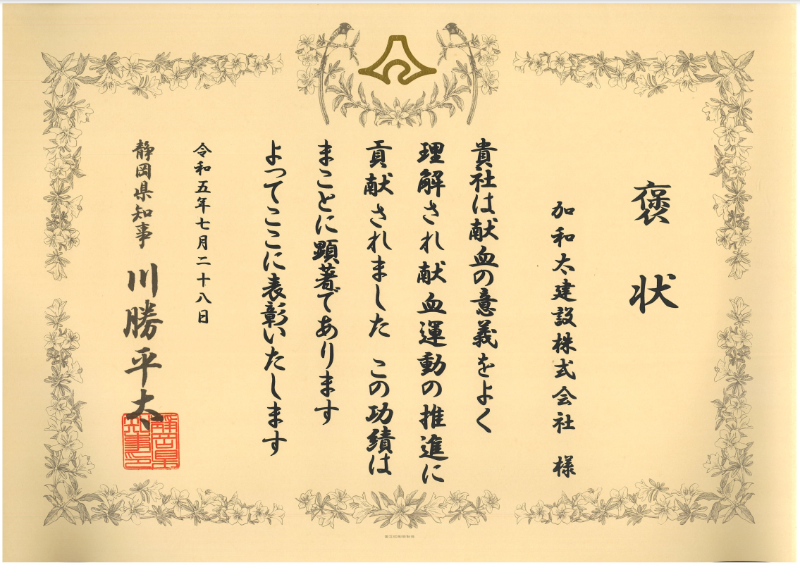 褒状
加和太建設株式会社 様
貴社は献血の意義をよく
理解され献血運動の推進に
貢献されました この功績は
まことに顕著であります
よってここに表彰いたします
令和五年七月二十八日
静岡県知事 川勝平太